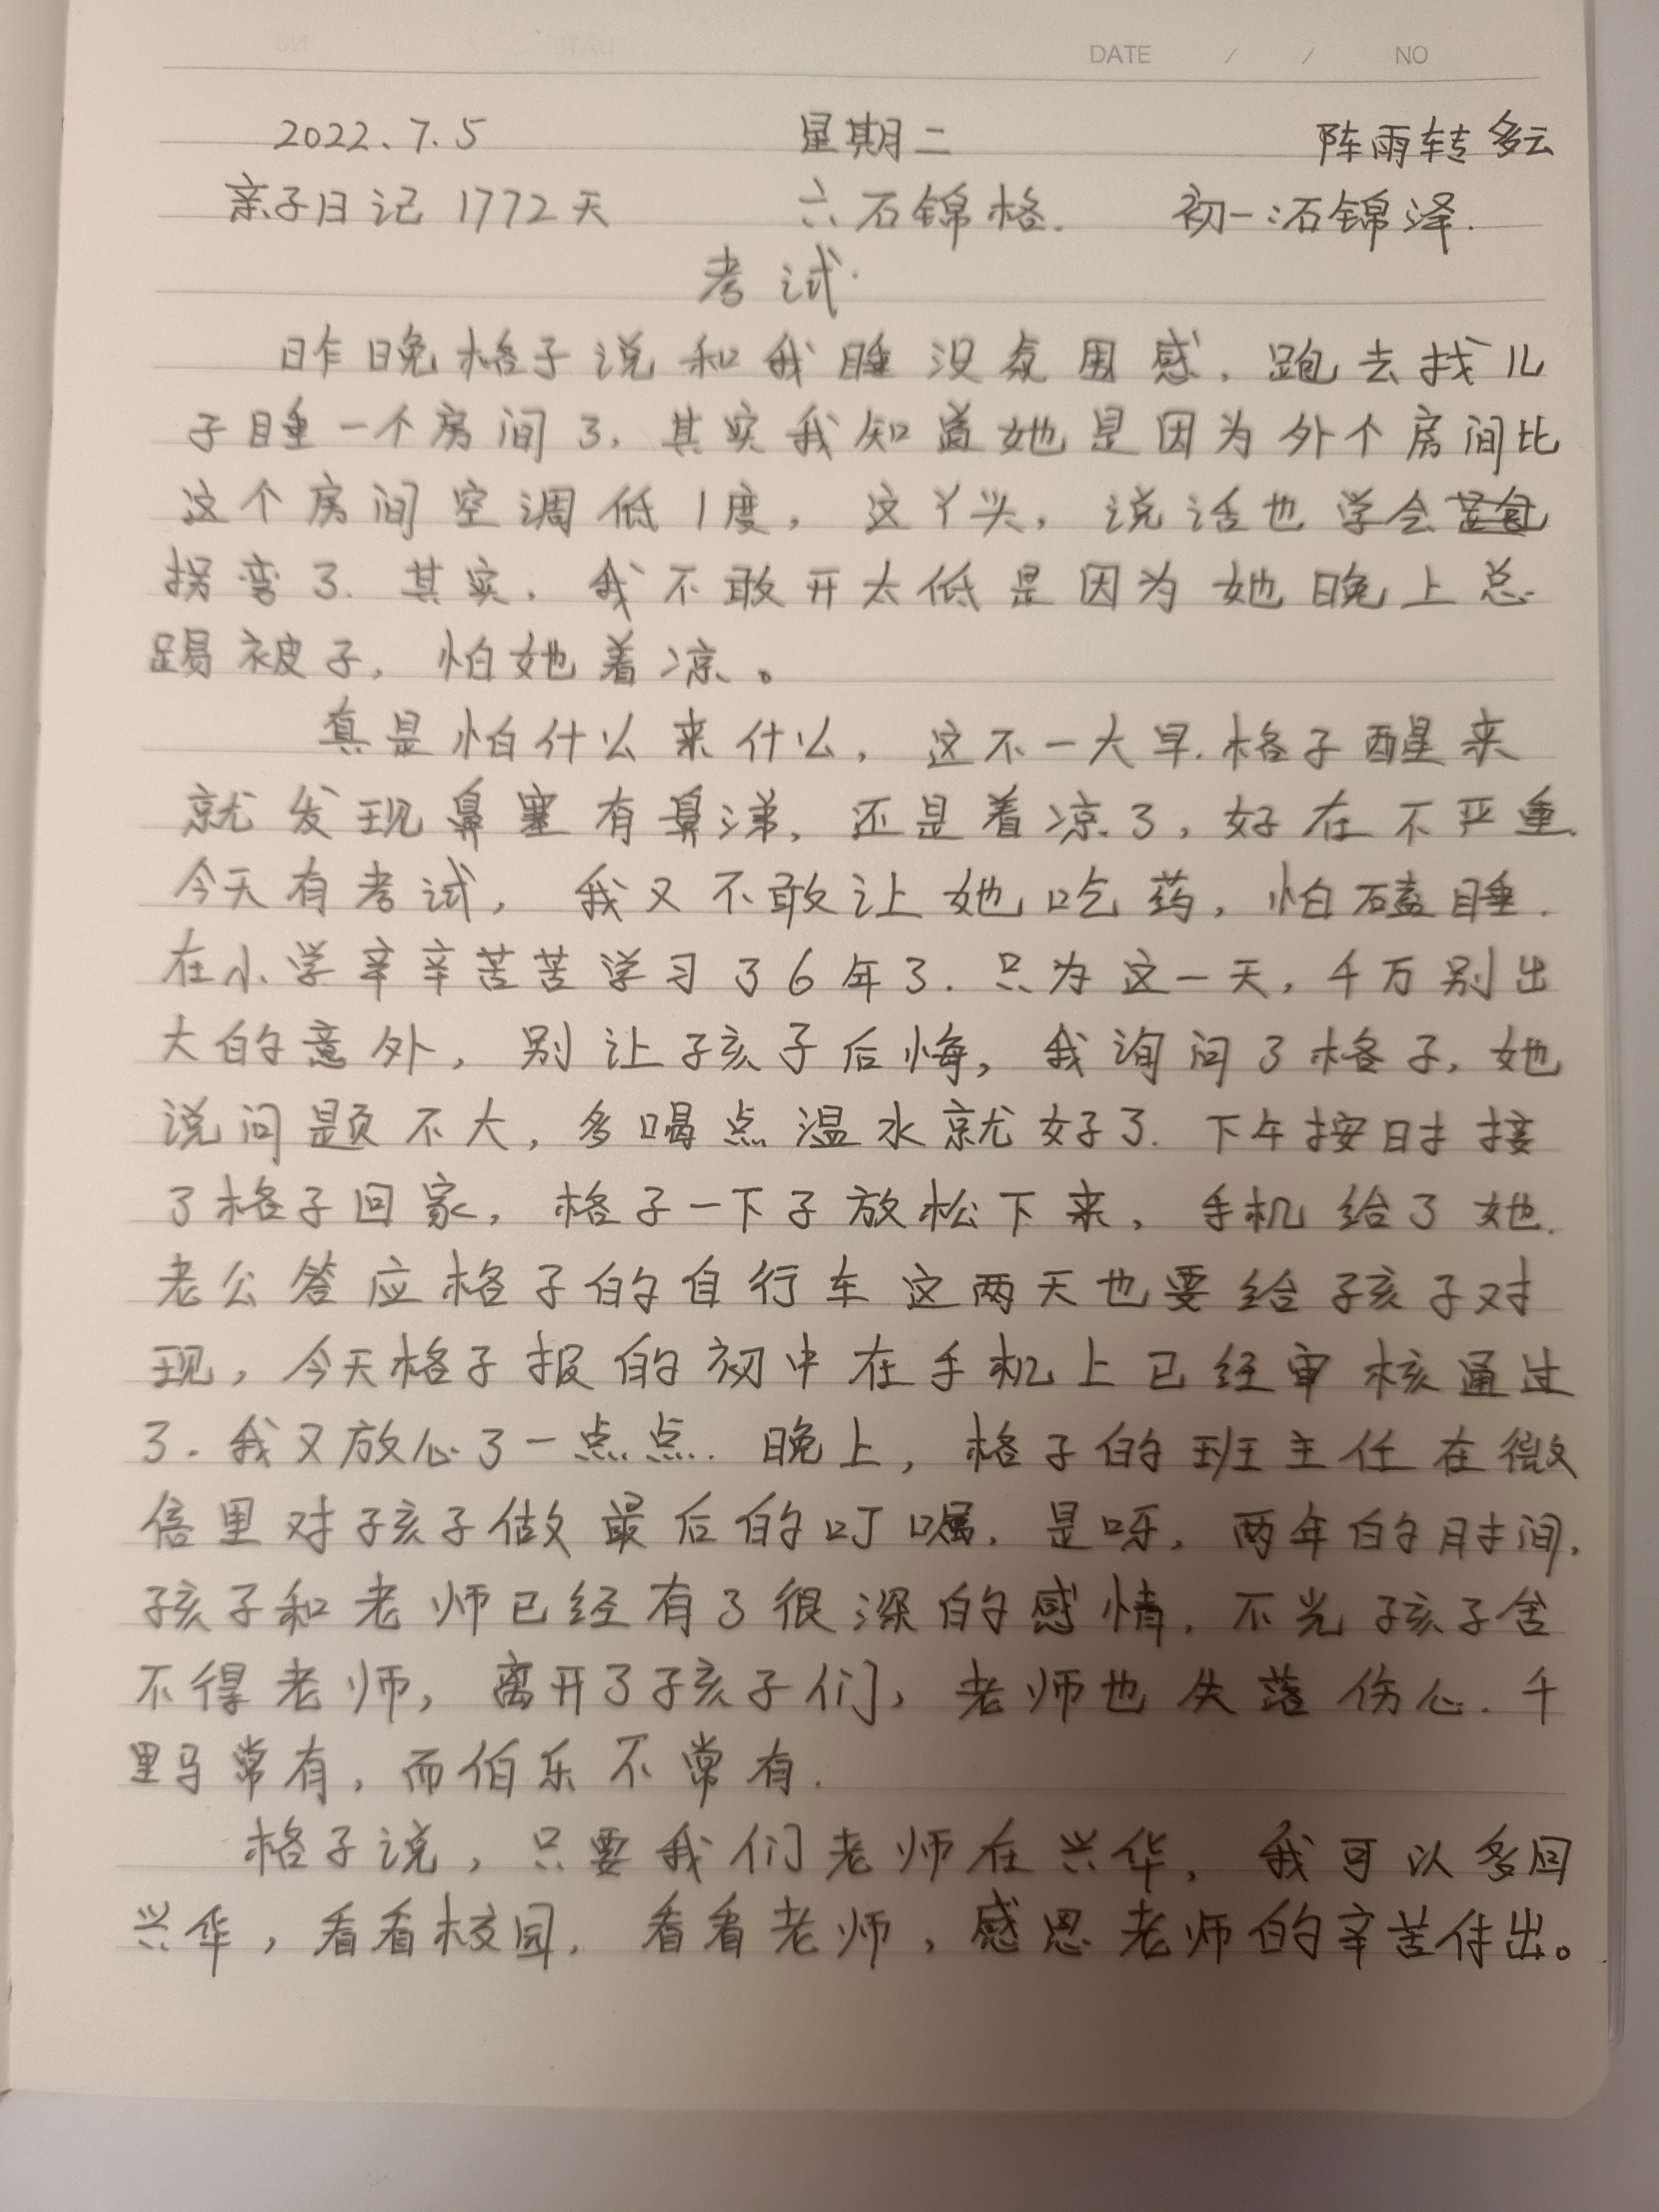 DATE / / NO
2022.7.5 星期二 阵雨转多云
亲子日记1772天 六石锦格. 初一:石锦泽.
考试.
昨晚格子说和我睡没氛围感,跑去找儿
子睡一个房间了,其实我知道她是因为外个房间比
这个房间空调低1度,这丫头,说话也学会
拐弯了.其实,我不敢开太低是因为她晚上总
踢被子,怕她着凉。
真是怕什么来什么,这不一大早.格子醒来
就发现鼻塞有鼻涕,还是着凉了,好在不严重.
今天有考试,我又不敢让她吃药,怕磕睡.
在小学辛辛苦苦学习了6年了.只为这一天,千万别出
大的意外,别让孩子后悔,我询问了格子,她
说问题不大,多喝点温水就好了.下午按时接
了格子回家,格子一下子放松下来,手机给了她.
老公答应格子的自行车这两天也要给孩子对
现,今天格子报的初中在手机上已经审核通过
了.我又放心了一点点.晚上,格子的班主任在微
信里对孩子做最后的叮嘱.是呀,两年的时间,
孩子和老师已经有了很深的感情,不光孩子舍
不得老师,离开了孩子们,老师也失落伤心.千
里马常有,而伯乐不常有.
格子说,只要我们老师在兴华,我可以多回
兴华,看看校园,看看老师,感恩老师的辛苦付出。